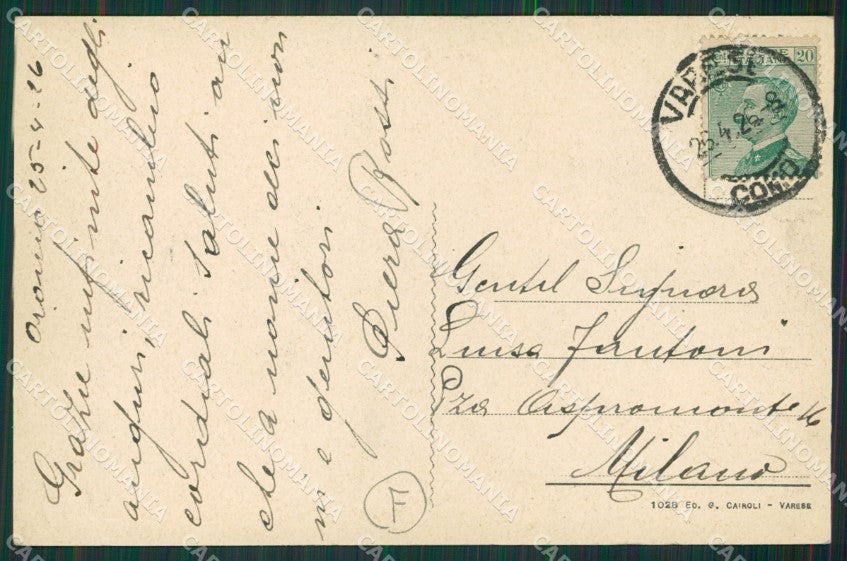 25-4-26
Grazie infinite degli
auguri, ricambio
cordiali saluti an
che a nome dei non
ni e genitori
Piera Rossi
VARESE
25.4.26
20
Gentil Signora
Luisa Fantoni
Pza Aspromonte 16
Milano
F
102B ED. G. CAIROLI - VARESE
CARTOLINOMANIA